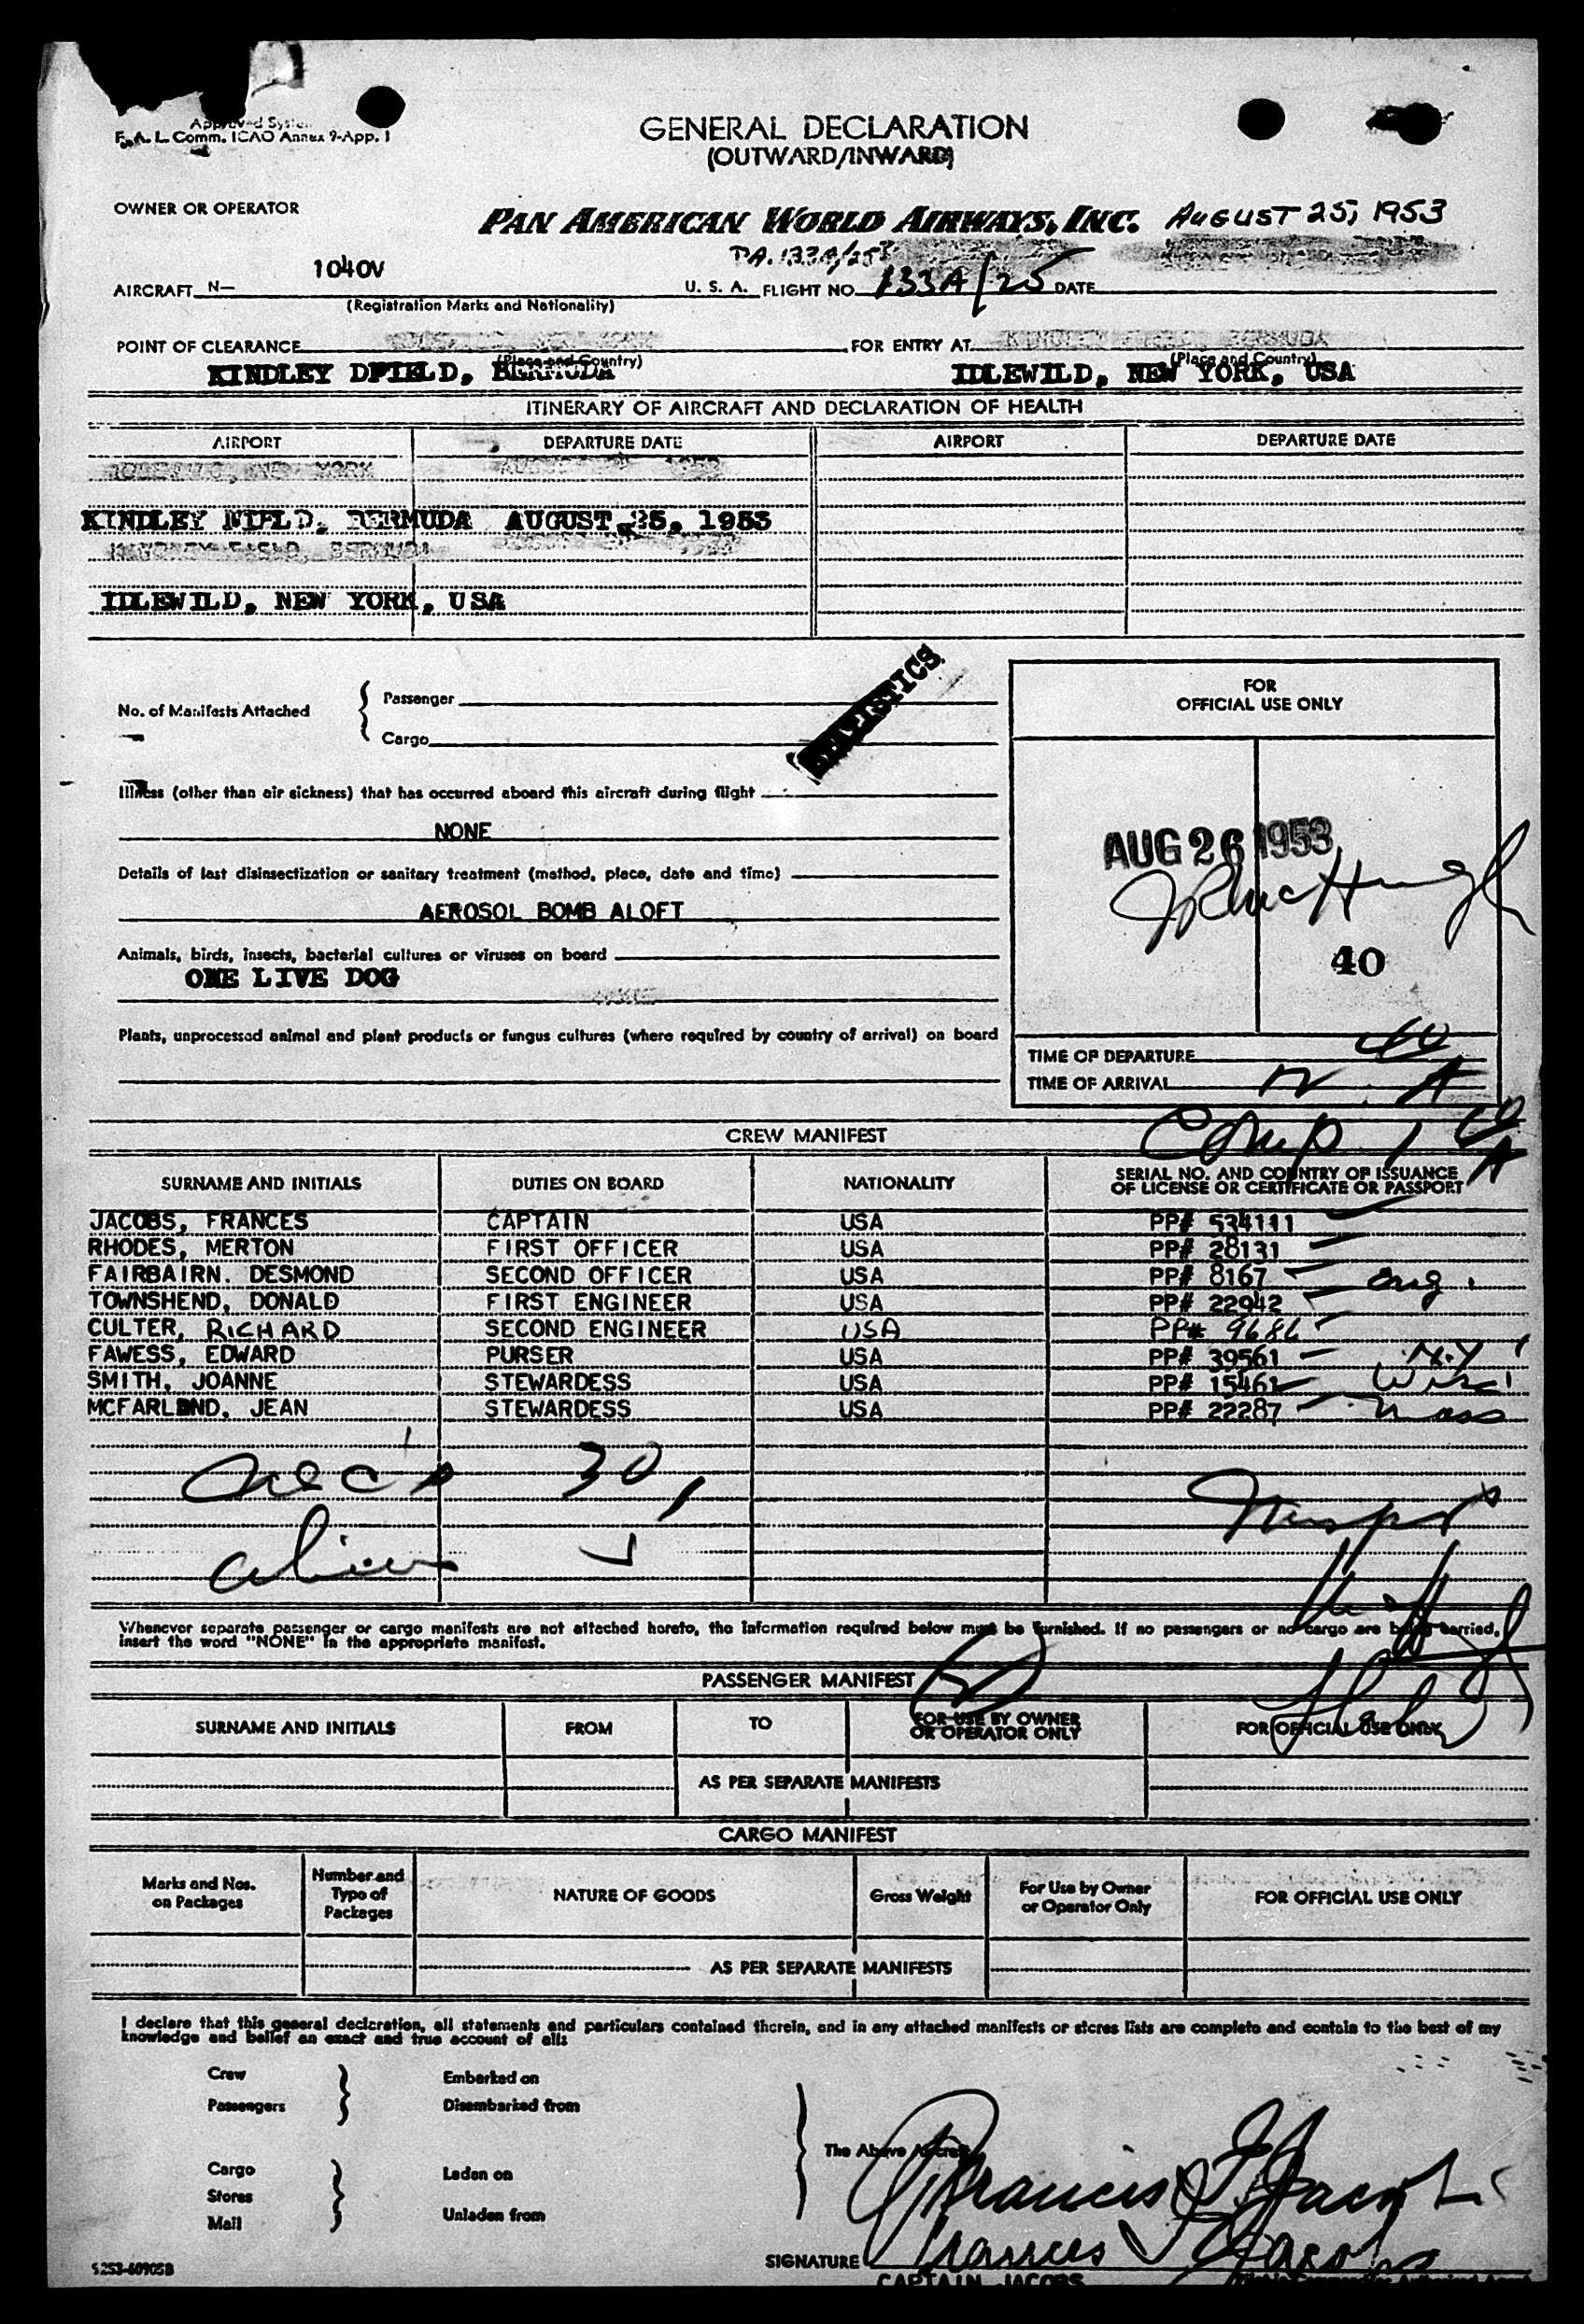 Approved System
F. A. L. Comm. ICAO Annex 9-App. 1
GENERAL DECLARATION
(OUTWARD/INWARD)
OWNER OR OPERATOR
PAN AMERICAN WORLD AIRWAYS, INC. AUGUST 25, 1953
PA. 133A/25
AIRCRAFT N— 1040V U. S. A. FLIGHT NO. 133A/25 DATE
(Registration Marks and Nationality)
POINT OF CLEARANCE FOR ENTRY AT
(Place and Country) (Place and Country)
KINDLEY DFIELD, BERMUDA IDLEWILD, NEW YORK, USA
ITINERARY OF AIRCRAFT AND DECLARATION OF HEALTH
AIRPORT DEPARTURE DATE AIRPORT DEPARTURE DATE
KINDLEY NIFLD, BERMUDA AUGUST 25, 1953
IDLEWILD, NEW YORK, USA
STATISTICS
No. of Manifests Attached
Passenger
Cargo
FOR
OFFICIAL USE ONLY
Illness (other than air sickness) that has occurred aboard this aircraft during flight
NONE
AUG 26 1953
Details of last disinsectization or sanitary treatment (method, place, date and time)
AEROSOL BOMB ALOFT
Animals, birds, insects, bacterial cultures or viruses on board
ONE LIVE DOG
40
Plants, unprocessed animal and plant products or fungus cultures (where required by country of arrival) on board
TIME OF DEPARTURE
TIME OF ARRIVAL
CREW MANIFEST
SURNAME AND INITIALS DUTIES ON BOARD NATIONALITY SERIAL NO. AND COUNTRY OF ISSUANCE
OF LICENSE OR CERTIFICATE OR PASSPORT
JACOBS, FRANCES CAPTAIN USA PP# 534111
RHODES, MERTON FIRST OFFICER USA PP# 28131
FAIRBAIRN. DESMOND SECOND OFFICER USA PP# 8167 Eng.
TOWNSHEND, DONALD FIRST ENGINEER USA PP# 22942
CULTER, RICHARD SECOND ENGINEER USA PP# 9686
FAWESS, EDWARD PURSER USA PP# 39561 N.Y
SMITH, JOANNE STEWARDESS USA PP# 15461 Wisc
MCFARLOND, JEAN STEWARDESS USA PP# 22287 Mass
30
Whenever separate passenger or cargo manifests are not attached hereto, the information required below must be furnished. If no passengers or no cargo are being carried,
insert the word "NONE" in the appropriate manifest.
PASSENGER MANIFEST
SURNAME AND INITIALS FROM TO FOR USE BY OWNER
OR OPERATOR ONLY FOR OFFICIAL USE ONLY
AS PER SEPARATE MANIFESTS
CARGO MANIFEST
Marks and Nos.
on Packages Number and
Type of
Packages NATURE OF GOODS Gross Weight For Use by Owner
or Operator Only FOR OFFICIAL USE ONLY
AS PER SEPARATE MANIFESTS
I declare that this general declaration, all statements and particulars contained therein, and in any attached manifests or stores lists are complete and contain to the best of my
knowledge and belief an exact and true account of all:
Crew Embarked on
Passengers Disembarked from
The Above Aircraft
Cargo Laden on
Stores
Mail Unladen from
Francis J Jacobs
SIGNATURE Frances J Jacobs
CAPTAIN JACOBS